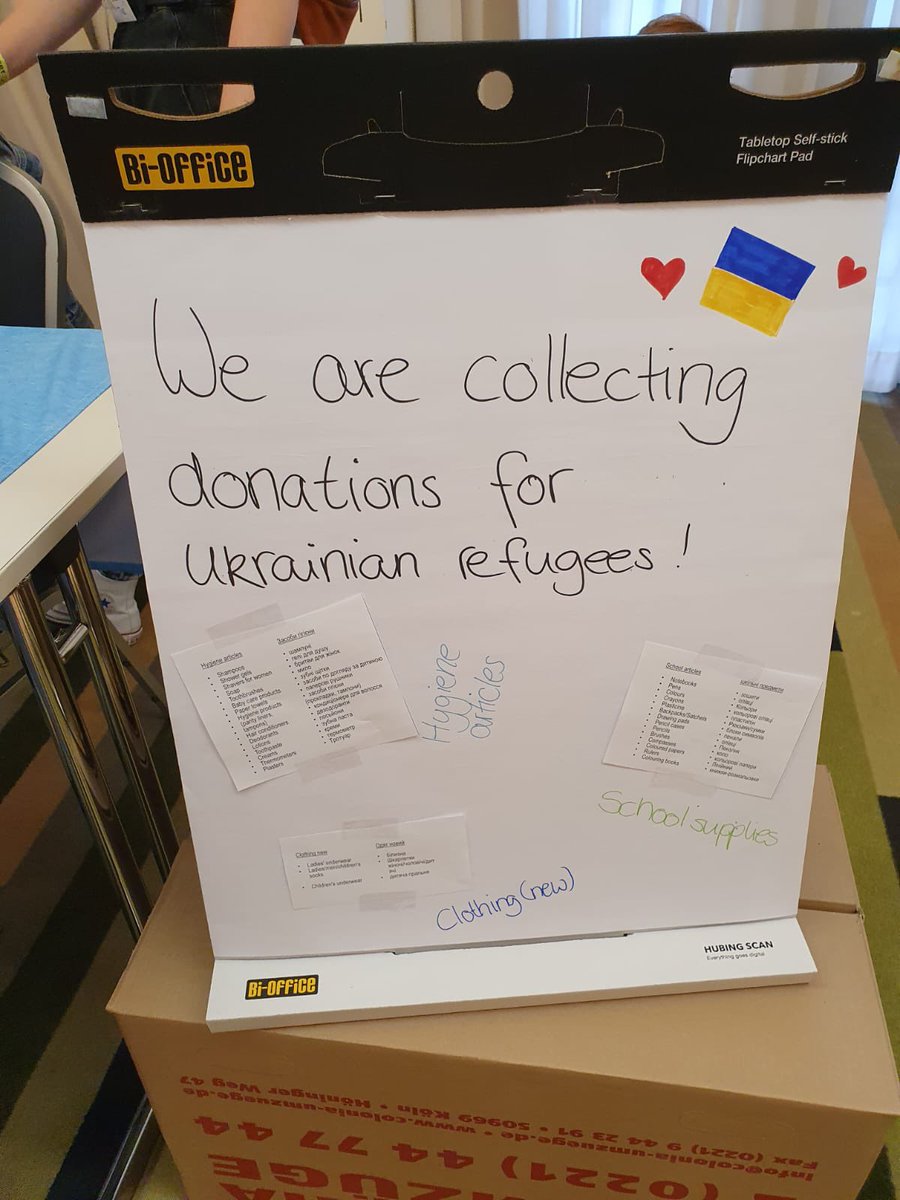 Bi-Office
Tabletop Self-stick
Flipchart Pad
We are collecting
donations for
Ukrainian refugees!
Hygiene articles
Shampoos
Shower gels
Shavers for women
Soap
Toothbrushes
Baby care products
Paper towels
Hygiene products
(panty liners,
tampons)
Hair conditioners
Deodorants
Lotions
Toothpaste
Creams
Thermometers
Plasters
Засоби гігієни
шампуні
гелі для душу
бритви для жінок
мило
зубні щітки
засоби по догляду за дитиною
паперові рушники
засоби гігієни
(прокладки, тампони)
кондиціонери для волосся
дезодоранти
лосьйони
зубна паста
креми
термометр
Hygiene
articles
School articles
Notebooks
Pens
Colours
Crayons
Plasticine
Backpacks/Satchels
Drawing pads
Pencil cases
Pencils
Brushes
Compasses
Coloured papers
Rulers
Colouring books
шкільні предмети
зошити
олівці
Кольори
кольорові олівці
пластилін
Рюкзаки/сумки
пенали
олівці
кольорові папери
Лінійки
книжки-розмальовки
School supplies
Clothing new
Ladies' underwear
Ladies/men/children's
socks
Children's underwear
Одяг новий
білизна
Шкарпетки
дитяча
Clothing (new)
Bi-Office
HUBING SCAN
Everything goes digital
(0221) 44 77 44
Fax (0221) 9 44 23 91 • 50969 Köln • Höninger Weg 47
info@colonia-umzuege.de • www.colonia-umzuege.de